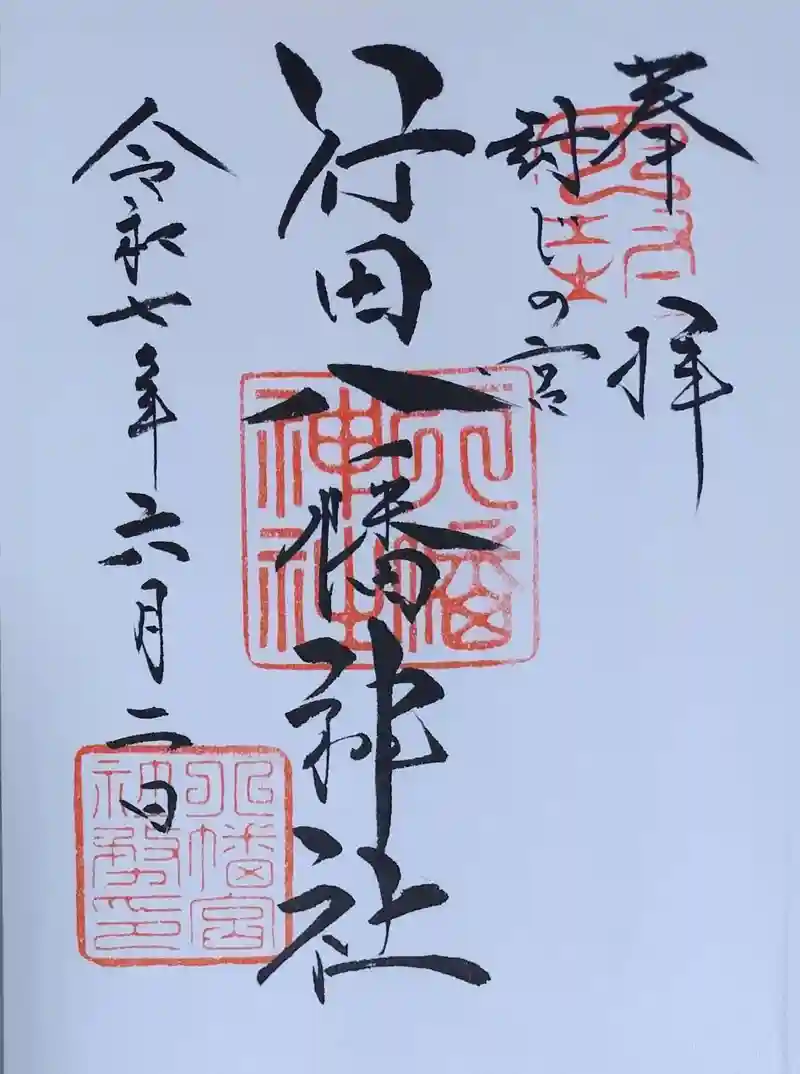 奉拝
封じの宮
行田八幡神社
令和七年六月二日
八幡
神社
八幡宮